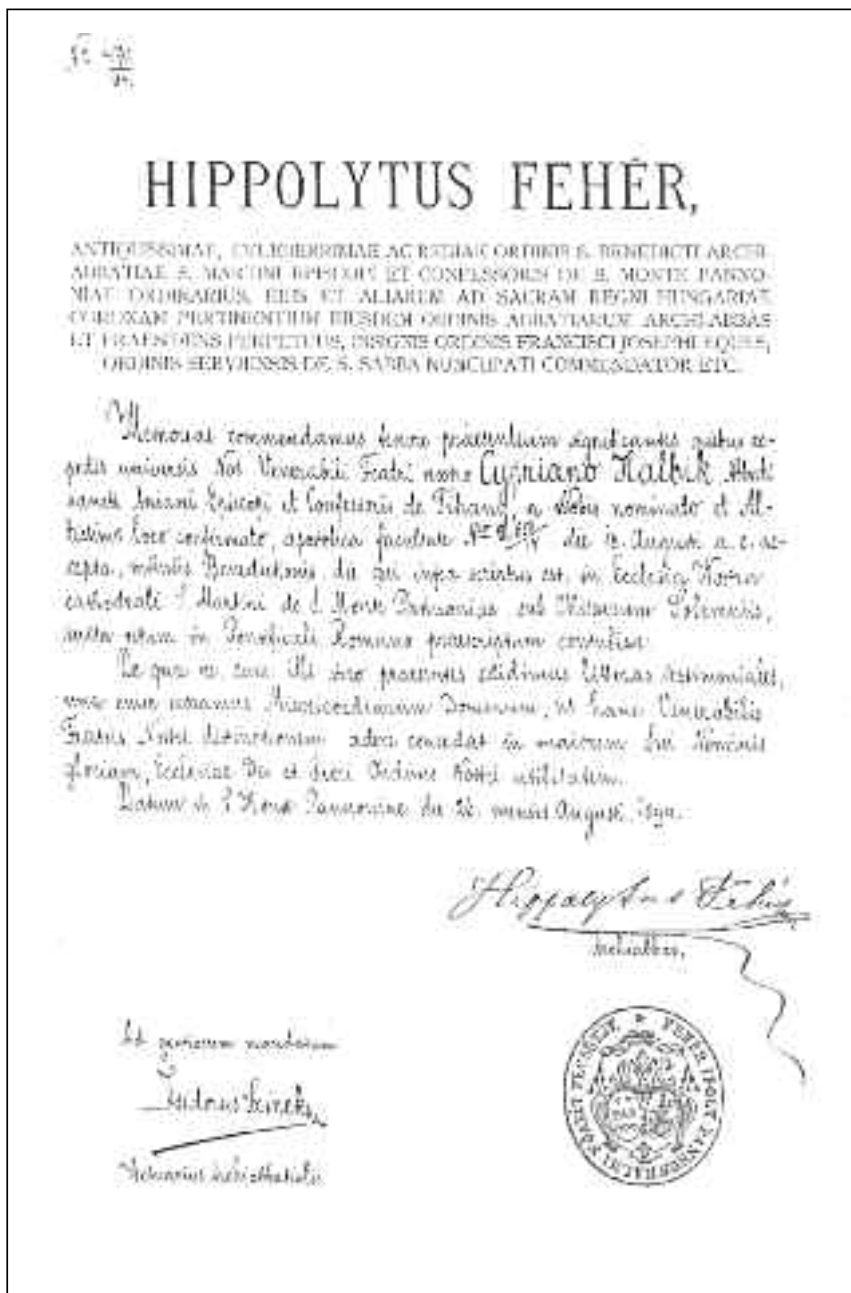 HIPPOLYTUS FEHÉR,
ANTIQUISSIMAE, CELEBERRIMAE AC REGIAE ORDINIS S. BENEDICTI ARCHI-
ABBATIAE S. MARTINI EPISCOPI ET CONFESSORIS DE S. MONTE PANNO-
NIAE ORDINARIUS, EIUS ET ALIARUM AD SACRAM REGNI HUNGARIAE
CORONAM PERTINENTIUM EIUSDEM ORDINIS ABBATIARUM ARCHI-ABBAS
ET PRAESIDENS PERPETUUS, INSIGNIS ORDINIS FRANCISCI JOSEPHI EQUES,
ORDINIS SERVIENSIS DE S. SABBA NUNCUPATI COMMENDATOR ETC.
Memoriae commendamus tenore praesentium significantes quibus ex-
pedit universis Nos Venerabili Fratri nostro Cypriano Halbik Abbati
sancti Aniani Episcopi et Confessoris de Tihany, a Nobis nominato et Al-
tissimo loco confirmato, apostolica facultate die 12. Augusti a. c. ac-
cepta, Benedictionis, die qui infra scriptus est, in Ecclesia Nostra
cathedrali S. Martini de S. Monte Pannoniae sub Missarum Solemniis,
iuxta ritum in Pontificali Romano praescriptum contulisse.
De qua re praesentes edidimus litteras testimoniales,
Misericordiam Domini, ut hanc Venerabilis
Fratris Nostri distinctionem cedat in maiorem Sui Nominis
gloriam, Ecclesiae Dei et Ordinis Nostri utilitatem.
Datum in S. Monte Pannoniae die mensis Augusti
Hippolytus Fehér
Archiabbas.
Ad mandatum
Isidorus
FEHÉR IPOLY PANNONHALMI FŐAPÁT PECSÉTJE